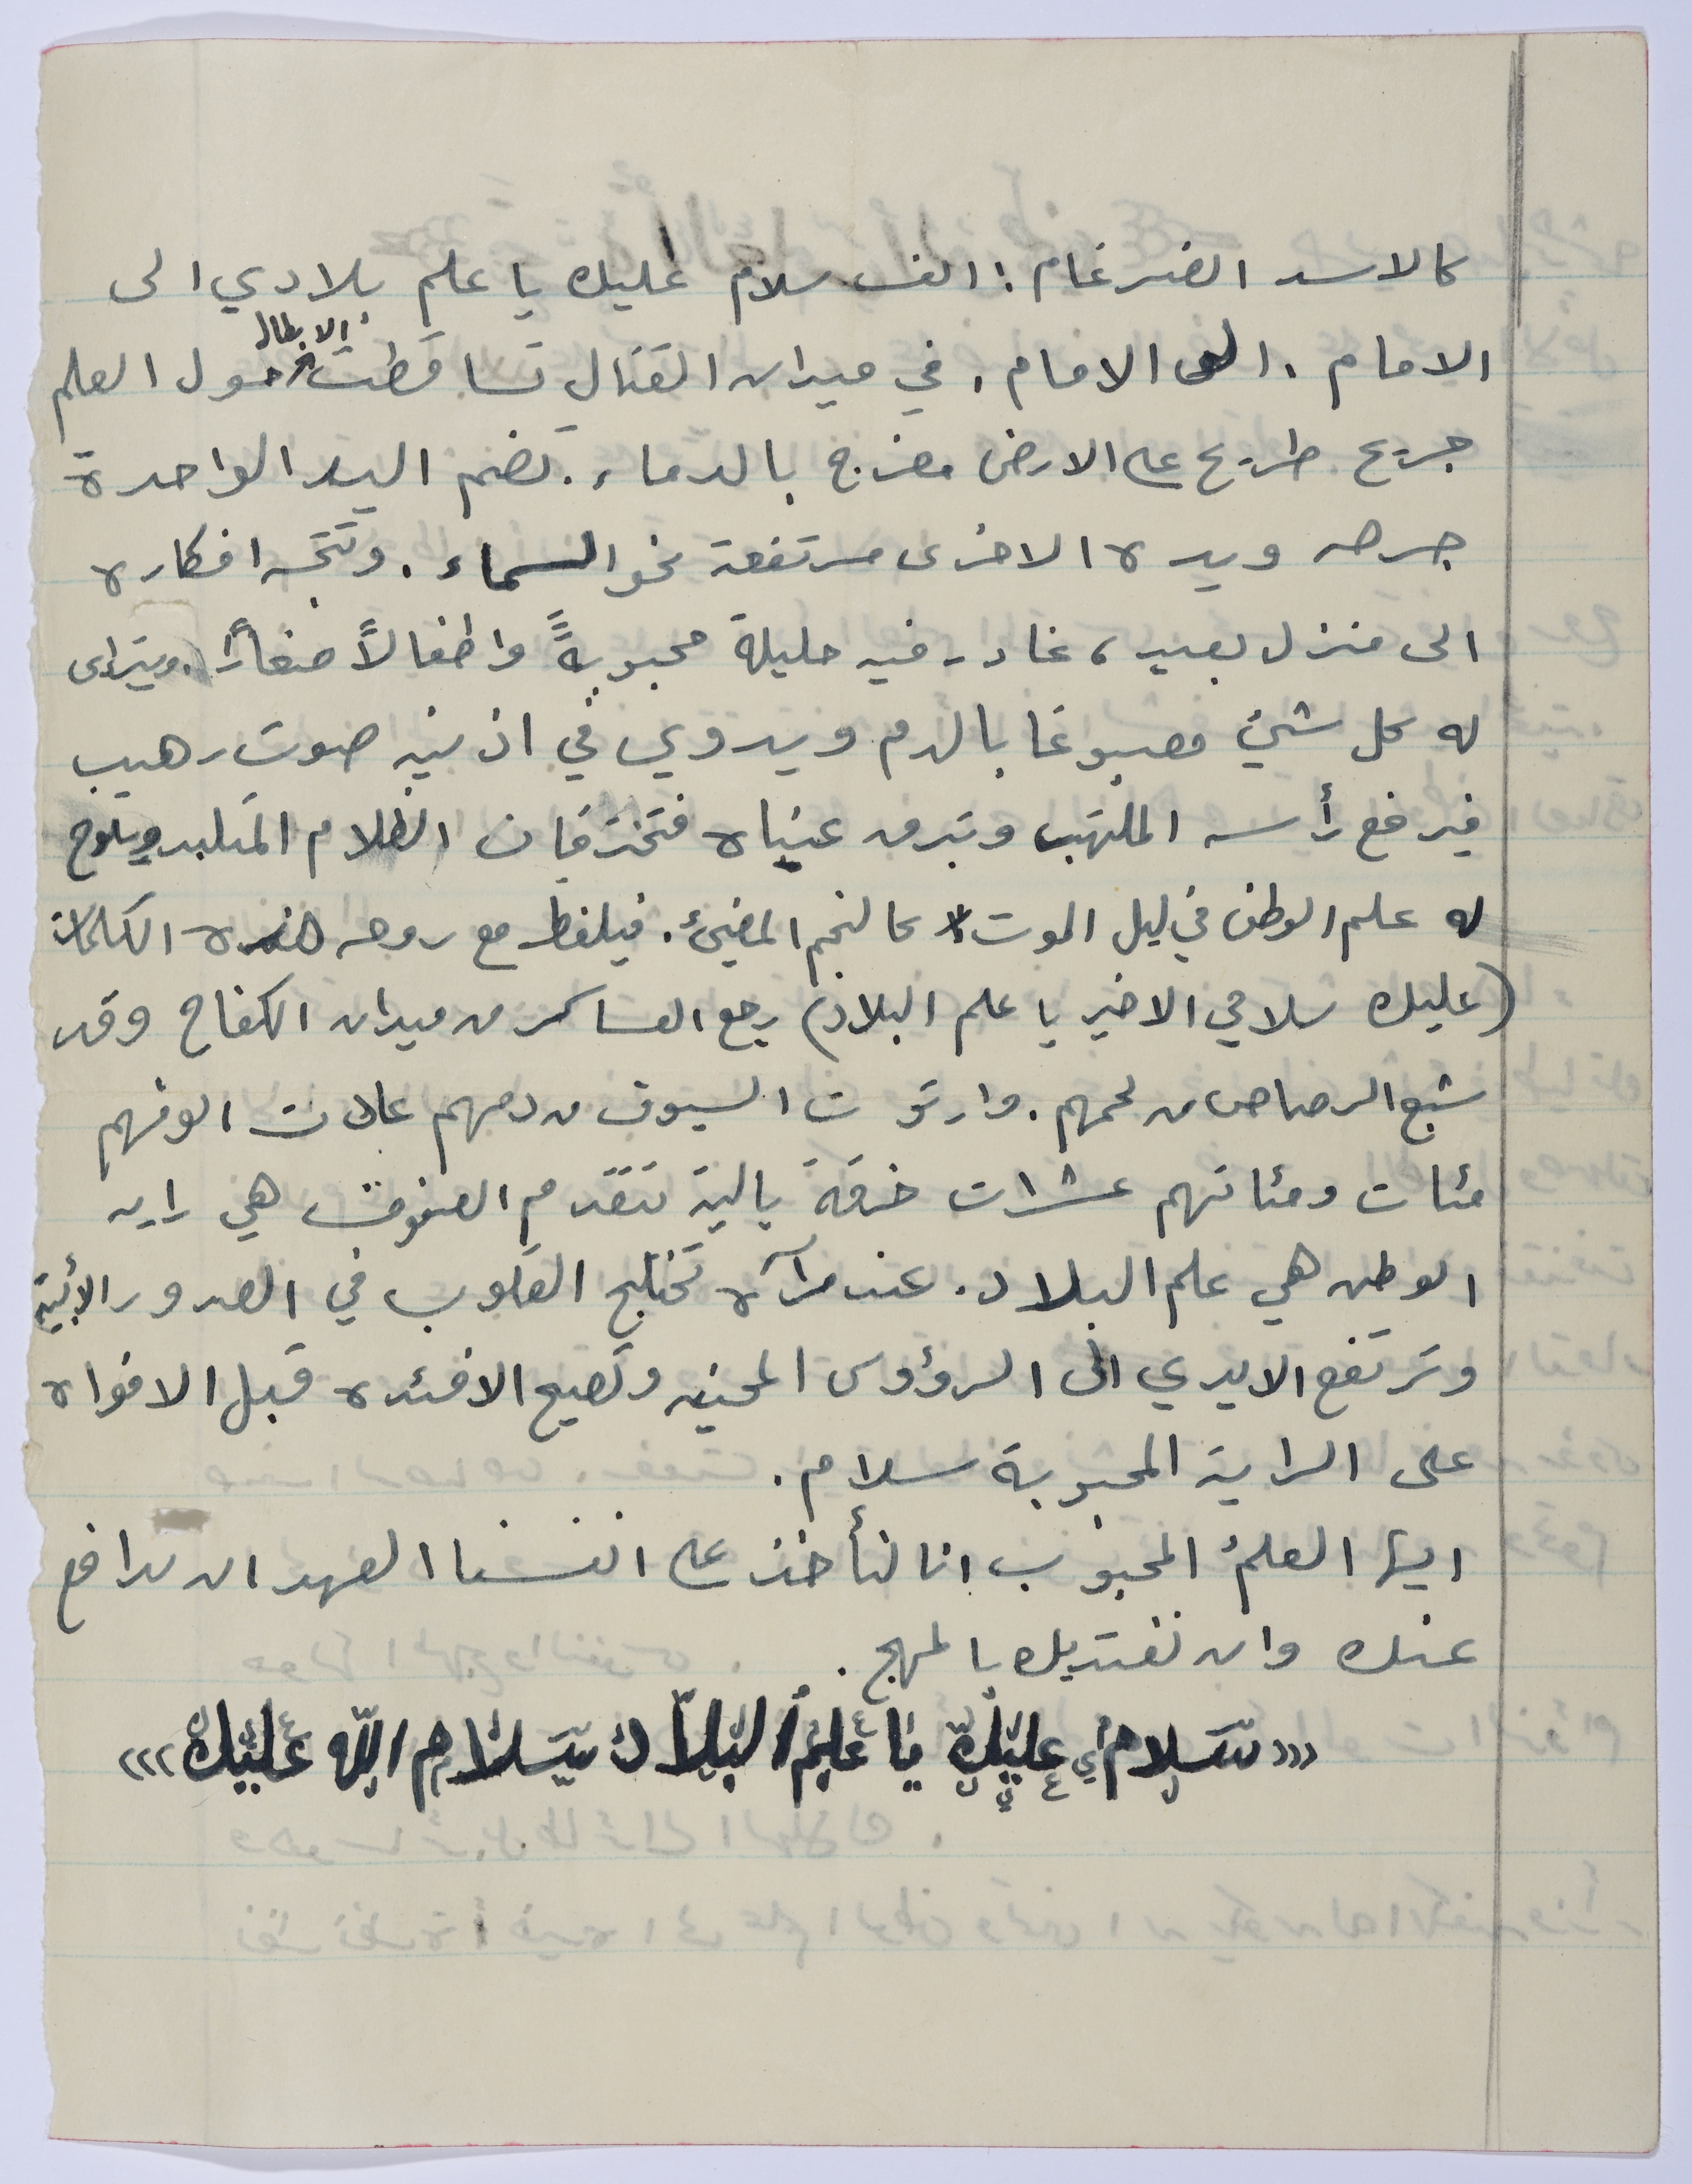 كالاسد الضرغام: الف سلام عليك يا علم بلادي الى
الامام. الى الامام. في ميدان القتال تساقطت الابطال حول العلم
جريح طريح على الارض مضرج بالدماء. تضم اليد الواحدة
جرحه ويده الاخرى مرتفعة نحو السماء. وتتجه افكاره
الى منزل بعيد، غادر فيه حليلة محبوبةً واطفالاً صغاراً. ويتراى
له كل شيئ مصبوغا بالدم ويدوي في اذنيه صوت رهيب
فيرفع رأسه الملتهب وتبرق عيناه فتخترقان الظلام المتلبد ويلوح
له علم الوطن في ليل الموت كالنجم المضيئ. فيلفظ مع روحه هذه الكلمات
(عليك سلامي الاخير يا علم البلاد) رجع العساكر من ميدان الكفاح وقد
شبع الرصاص من لحمهم. وارتوت السيوف من دمهم عادت الوفهم
مئات ومئاتهم عشرات خرقة بالية تتقدم الصفوف هي راية
الوطن هي علم البلاد. عند مرآه تختلج القلوب في الصدور الأبية
وترتفع الايدي الى الرؤوس المحنيه وتصيح الافئده قبل الافواه
على الراية المحبوبة سلام.
ايها العلم المحبوب انا لنأخذ على انفسنا العهد ان ندافع
عنك وان نفتديك بالمهج.
((( سلامي عليك يا علم البلاد سلام الله عليك )))